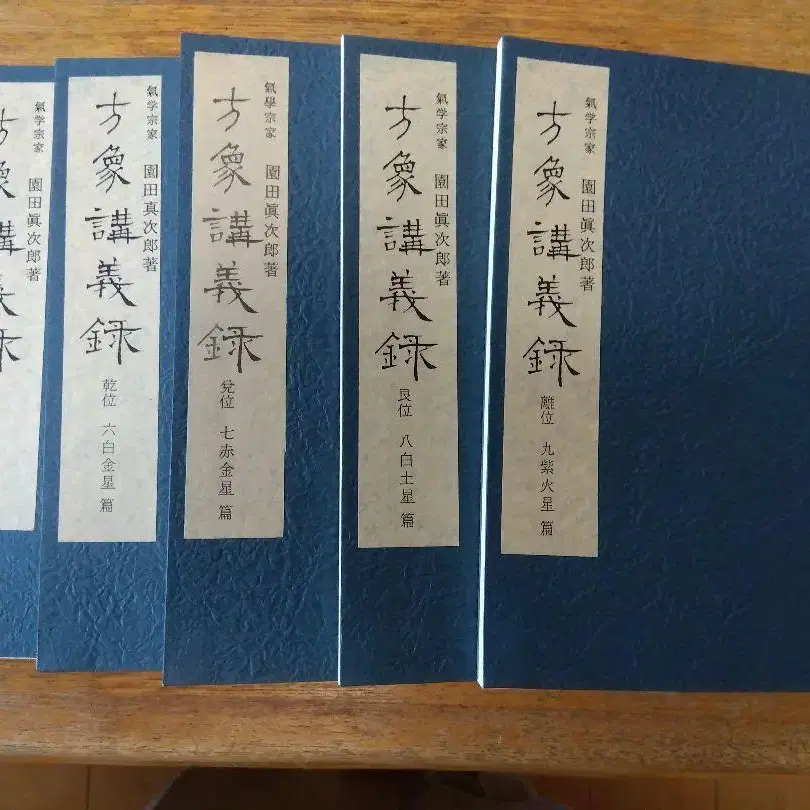 氣学宗家 園田眞次郎著
方象講義録 離位 九紫火星 篇
氣学宗家 園田眞次郎著
方象講義録 艮位 八白土星 篇
氣學宗家 園田眞次郎著
方象講義録 兌位 七赤金星 篇
氣学宗家 園田真次郎著
方象講義録 乾位 六白金星 篇
氣学宗家 園田眞次郎著
方象講義録